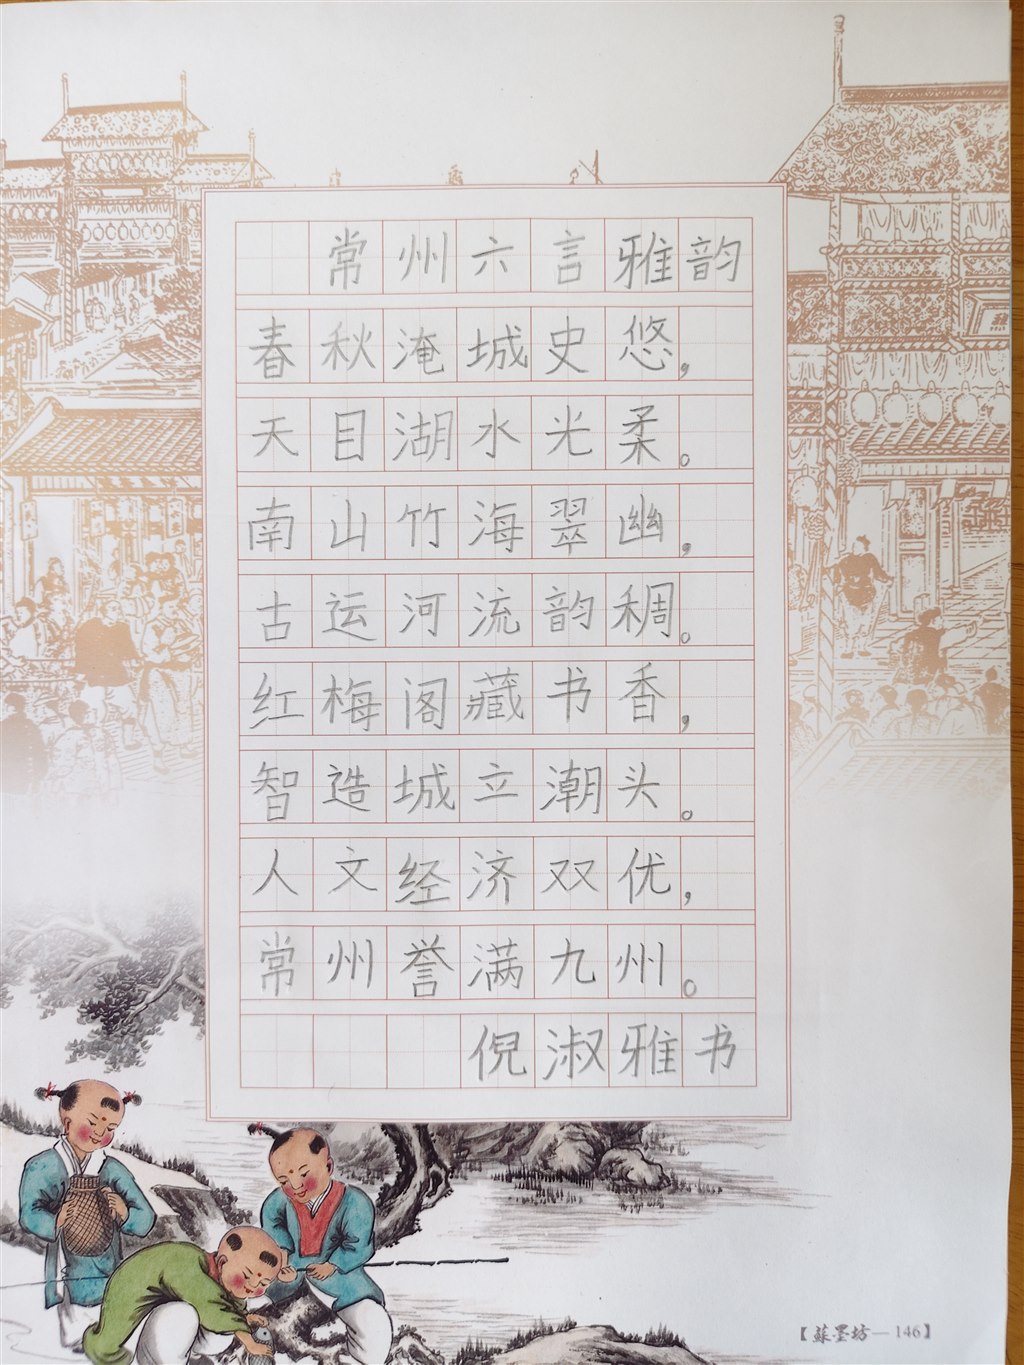 常州六言雅韵
春秋淹城史悠，
天目湖水光柔。
南山竹海翠幽，
古运河流韵稠。
红梅阁藏书香，
智造城立潮头。
人文经济双优，
常州誉满九州。
倪淑雅书
【蘇墨坊—146】